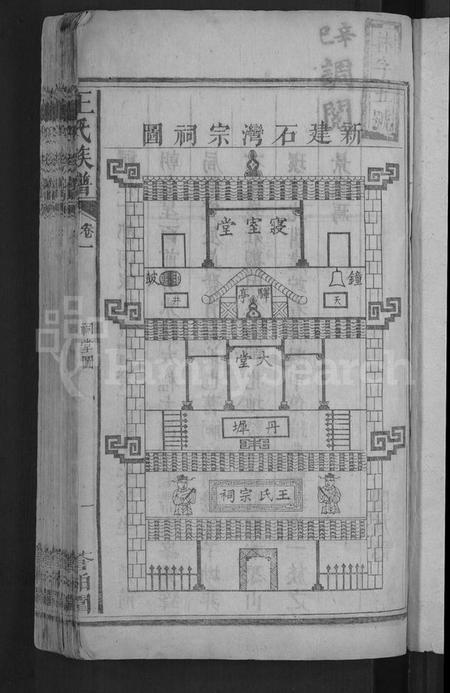 新建石灣宗祠圖
寢室堂
鐘
鼓
亭
天
井
大堂
丹墀
王氏宗祠
王氏族譜
卷一
祠堂圖
一
FamilySearch